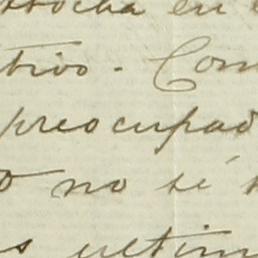 en
tivo. Com
preocupad
o no sé
s ultim